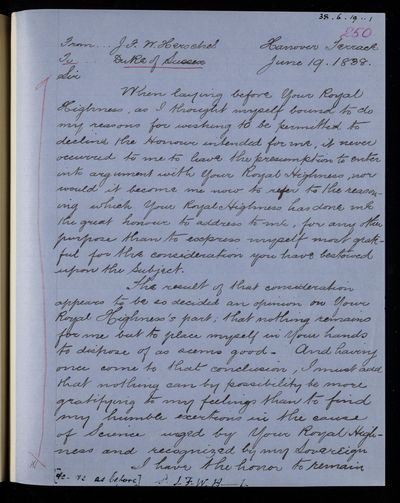 38.6.19..1
250
From... J. F. W. Herschel Hanover Terrace
To Duke of Sussex June 19. 1838.
Sir
When laying before Your Royal
Highness, as I thought myself bound to do
my reasons for wishing to be permitted to
decline the Honour intended for me, it never
occurred to me to have the presumption to enter
into argument with Your Royal Highness, nor
would it become me now to refer to the reason-
ing which Your Royal Highness has done me
the great honour to address to me, for any other
purpose than to express myself most grate-
ful for the consideration you have bestowed
upon the Subject.
The result of that consideration
appears to be so decided an opinion on Your
Royal Highness's part, that nothing remains
for me but to place myself in Your hands
to dispose of as seems good. And having
once come to that conclusion, I must add
that nothing can by possibility be more
gratifying to my feelings than to find
my humble exertions in the cause
of Science urged by Your Royal High-
ness and recognized by my Sovereign
I have the honor to remain
[&c. &c. as before] J. F. W. H